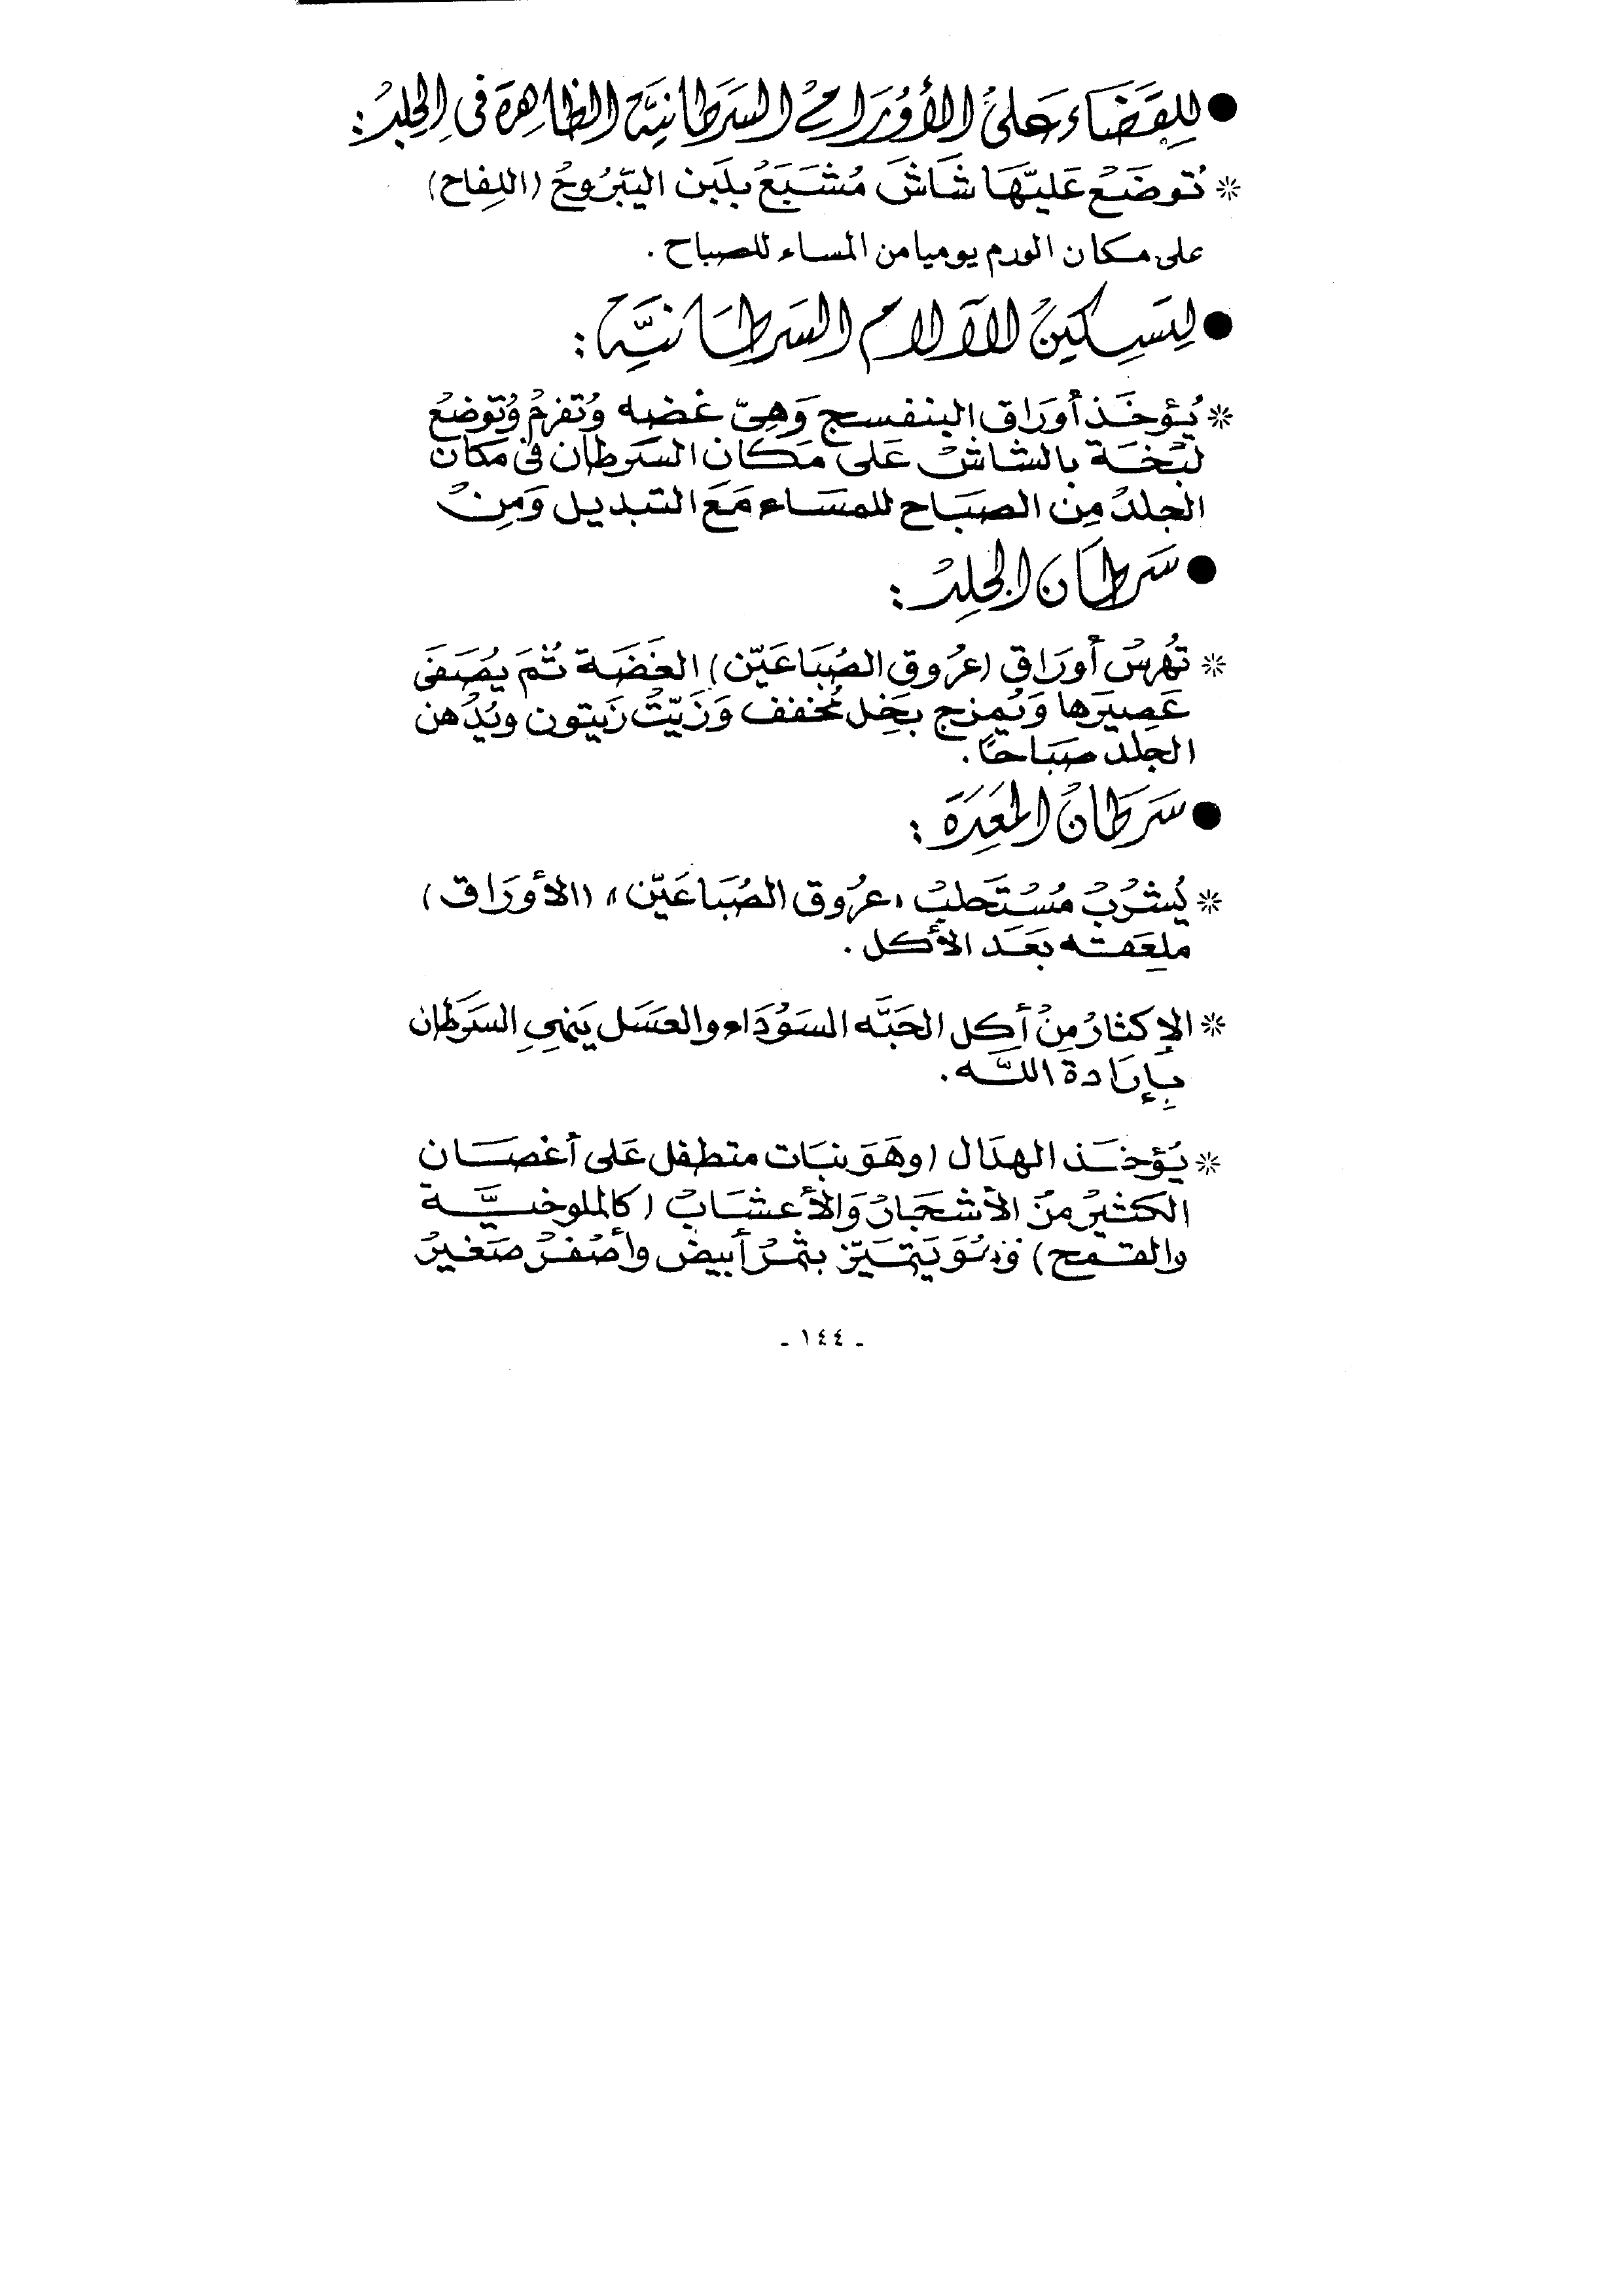 ● للقضاء على الأورام السرطانية الظاهرة فى الجلد :
* توضع عليها شاش مشبع بلبن اليبروح (اللفاح)
على مكان الورم يوميا من المساء للصباح .
● لتسكين الآلام السرطانية :
* يؤخذ أوراق البنفسج وهى غضه وتفرم وتوضع
لبخة بالشاش على مكان السرطان فى مكان
الجلد من الصباح للمساء مع التبديل ومن
● سرطان الجلد :
* تهرس أوراق (عروق الصباغين) الغضة ثم يصفى
عصيرها ويمزج بخل مخفف وزيت زيتون ويدهن
الجلد صباحا .
● سرطان المعدة :
* يشرب مستحلب «عروق الصباغين» (الأوراق)
ملعقته بعد الأكل .
* الإكثار من أكل الحبه السوداء والعسل ينهى السرطان
بإرادة الله .
* يؤخذ الهدال (وهو نبات متطفل على أغصان
الكثير من الأشجار والأعشاب (كالملوخية
والقمح) يتميز بثمر أبيض وأصفر صغير
- ١٤٤ -